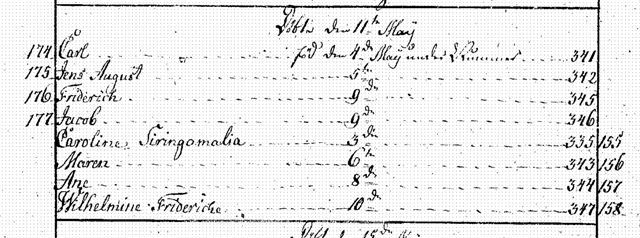 Döbte den 11te May
174 Carl fød den 4de May under Nummer 341
175 Jens August 5te 342
176 Friderich 9de 345
177 Jacob 9de 346
Caroline Siringamalia 3de 335 155
Maren 6te 343 156
Ane 8de 344 157
Wilhelmine Friderike 10de 347 158